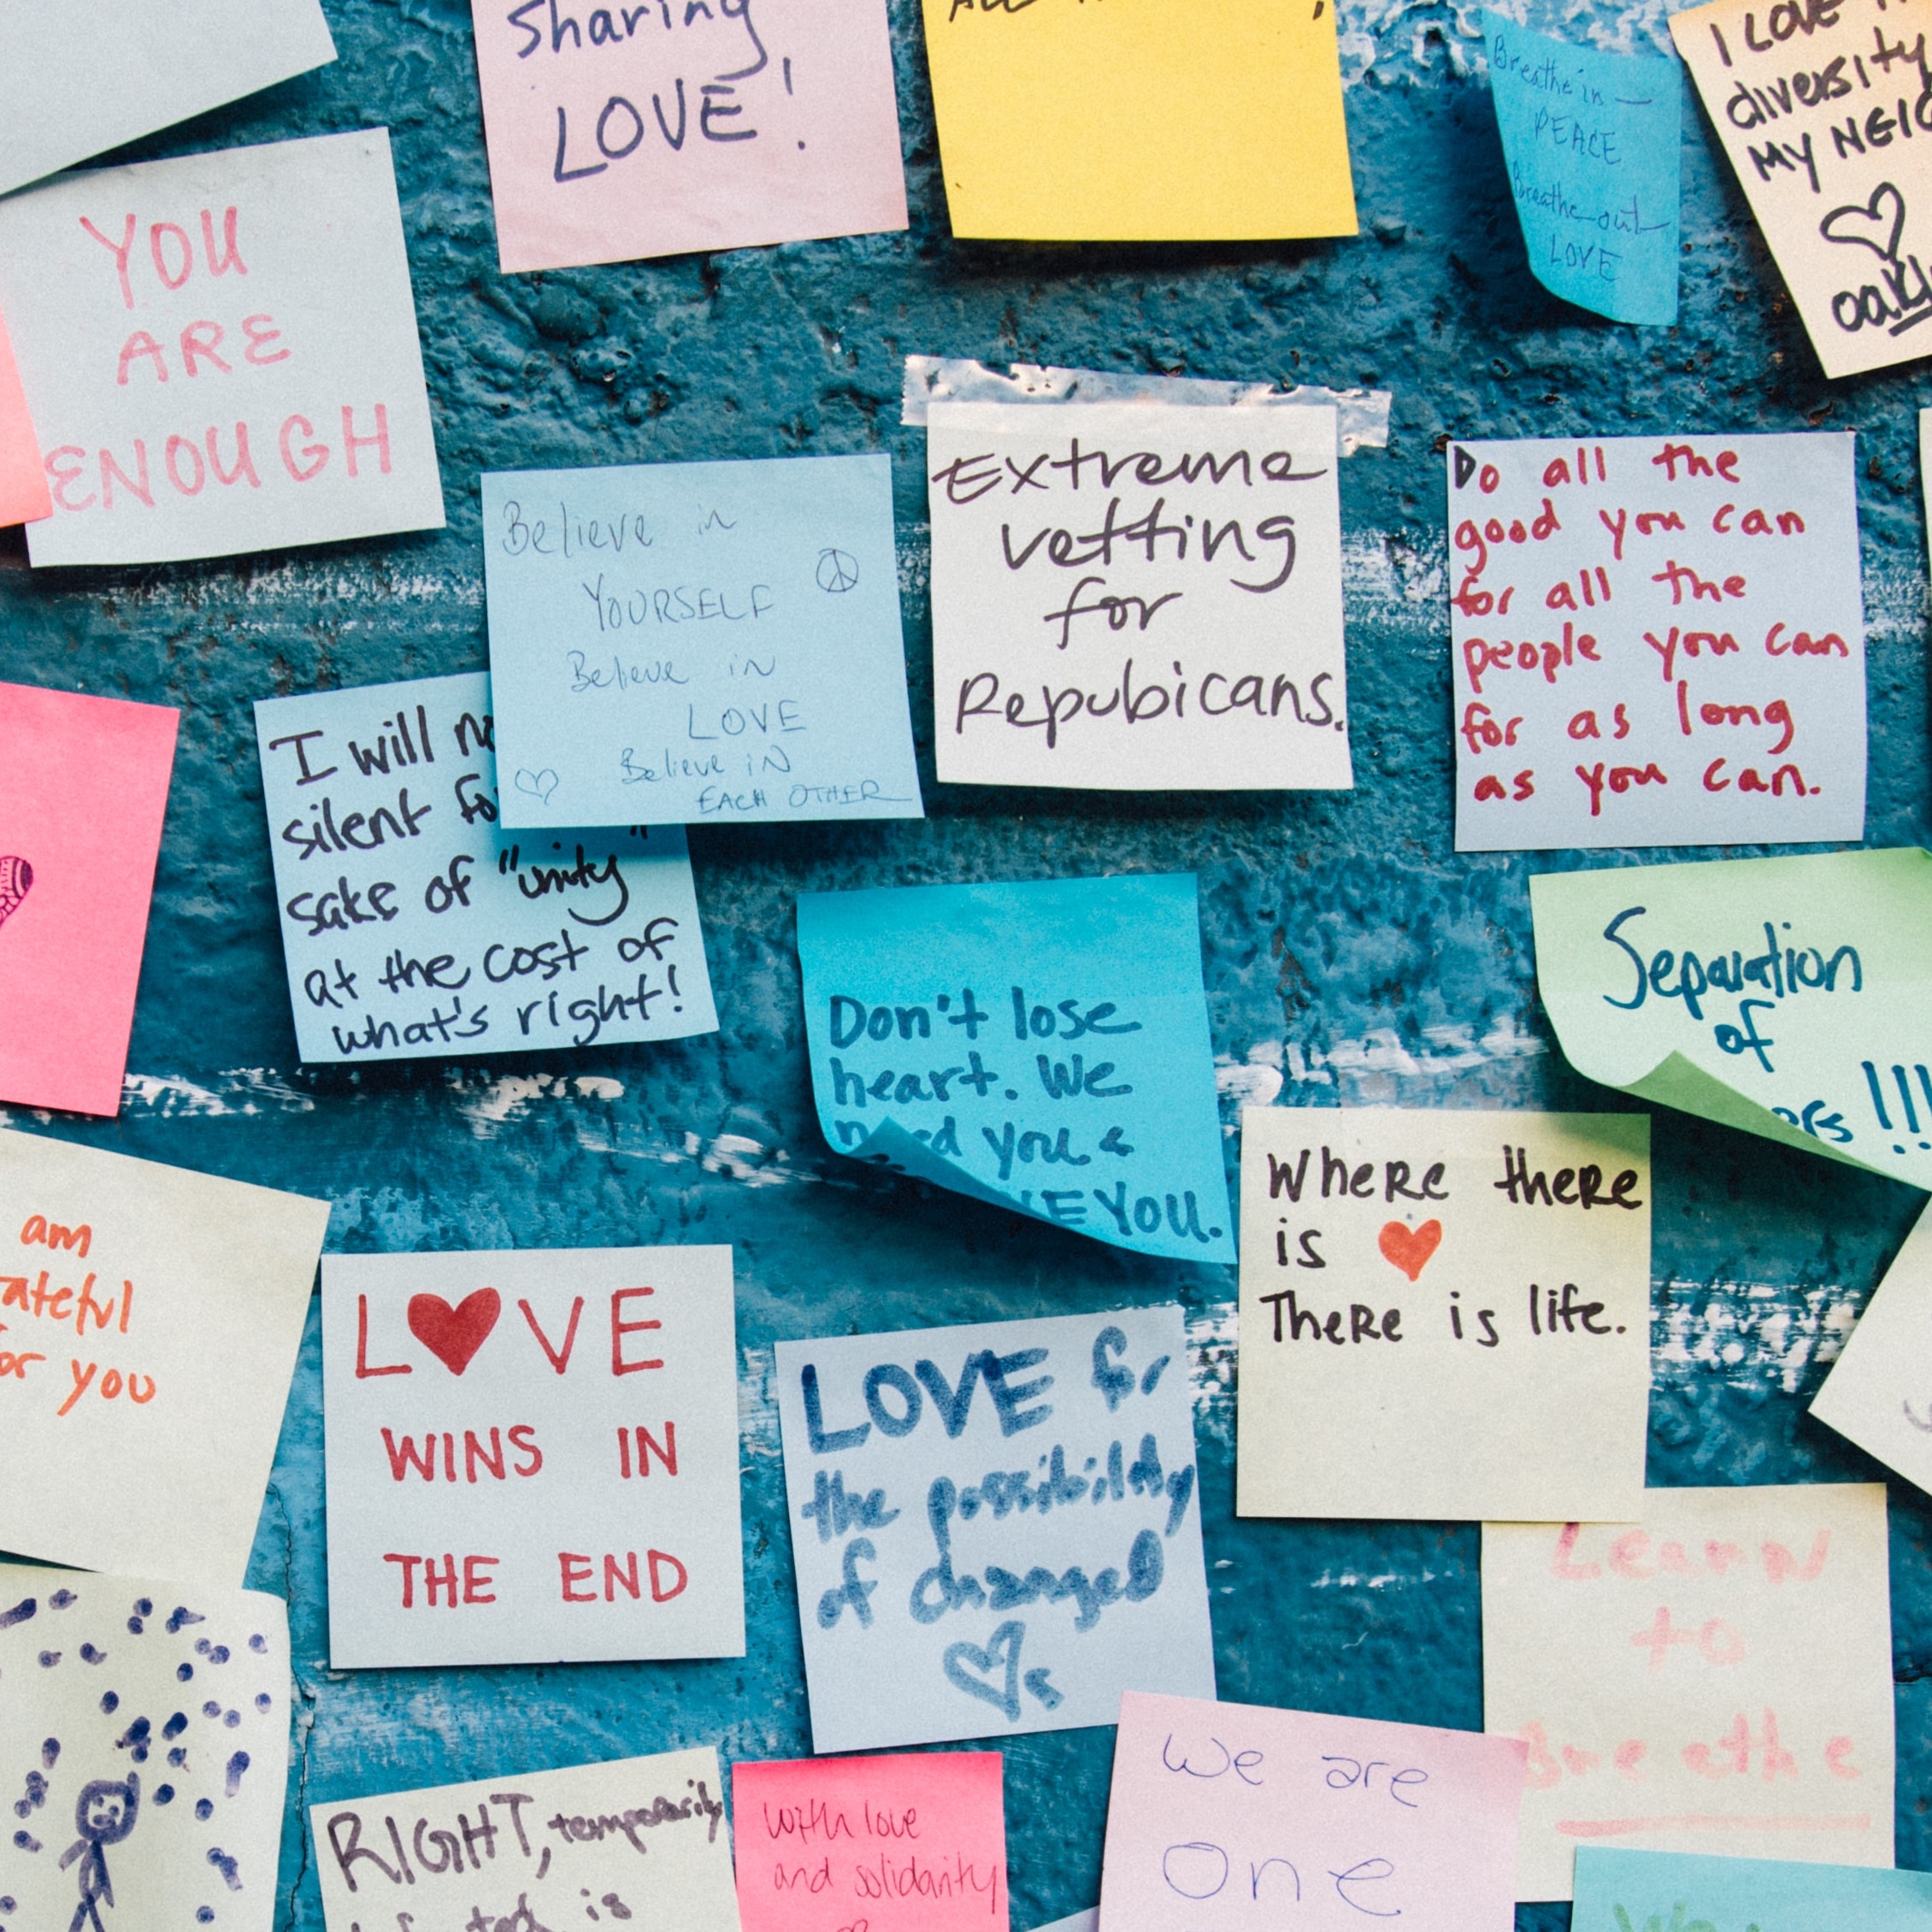 Sharing
LOVE!
Breathe in —
PEACE
Breathe out
LOVE
I LOVE
diversity
MY
YOU
ARE
ENOUGH
Believe in
YOURSELF
Believe in
LOVE
Believe iN
EACH OTHER
Extreme
vetting
for
Repubicans.
Do all the
good you can
for all the
people you can
for as long
as you can.
I will
silent
sake of "unity"
at the cost of
what's right!
Don't lose
heart. We
you &
YOU.
Separation
of
!!!
Where there
is ♥
There is life.
am
for you
L♥VE
WINS IN
THE END
LOVE for
the possibility
of changed
♡s
Learn
to
Breathe
RIGHT, temporarily
is
With love
and solidarity
We are
One